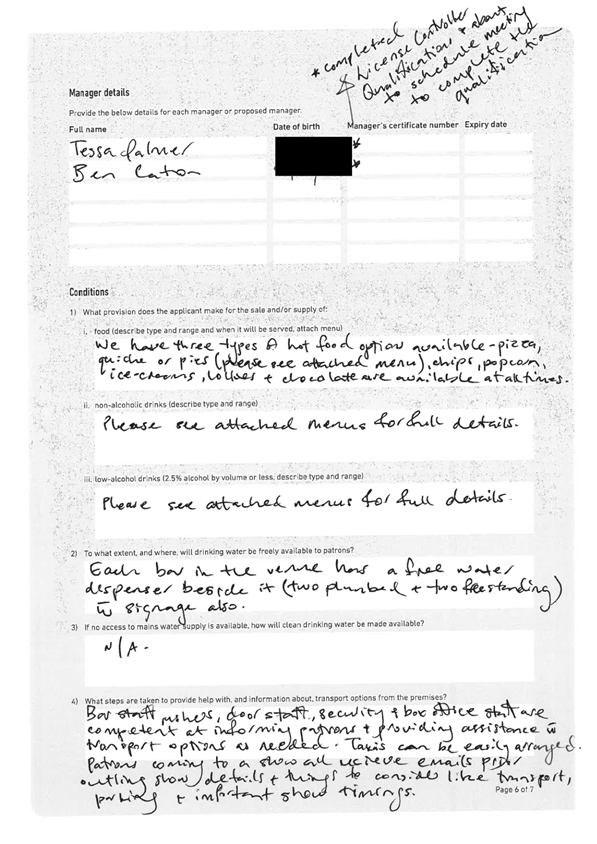 * completed
License Controller
Qualifications & about
to schedule meeting
to complete
qualification
Manager details
Provide the below details for each manager or proposed manager.
Full name Date of birth Manager's certificate number Expiry date
Tessa Palmer *
Ben *
Conditions
1) What provision does the applicant make for the sale and/or supply of:
i. - food (describe type and range and when it will be served, attach menu)
We have three types of hot food option available - pizza,
quiche or pies (please see attached menu), chips, popcorn,
ice-creams, lollies + chocolate are available at all times.
ii. non-alcoholic drinks (describe type and range)
Please see attached menus for full details.
iii. low-alcohol drinks (2.5% alcohol by volume or less, describe type and range)
Please see attached menus for full details.
2) To what extent, and where, will drinking water be freely available to patrons?
Each bar in the venue has a free water
dispenser beside it (two plumbed + two freestanding)
w signage also.
3) If no access to mains water supply is available, how will clean drinking water be made available?
N/A.
4) What steps are taken to provide help with, and information about, transport options from the premises?
Bar staff, ushers, door staff, security & box office staff are
competent at informing patrons & providing assistance w
transport options as needed. Taxis can be easily arranged.
Patrons coming to a show all recieve emails prior
outling show details + things to consider like transport,
parking + important show timings.
Page 6 of 7